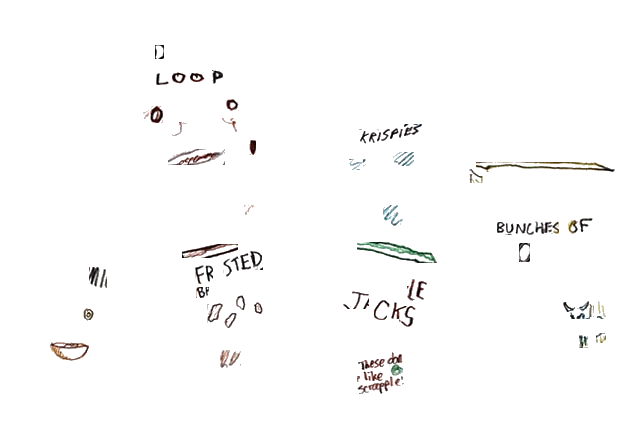 LOOP
KRISPIES
BUNCHES OF
FR STED
LE
JACKS
These
like
scrapple!